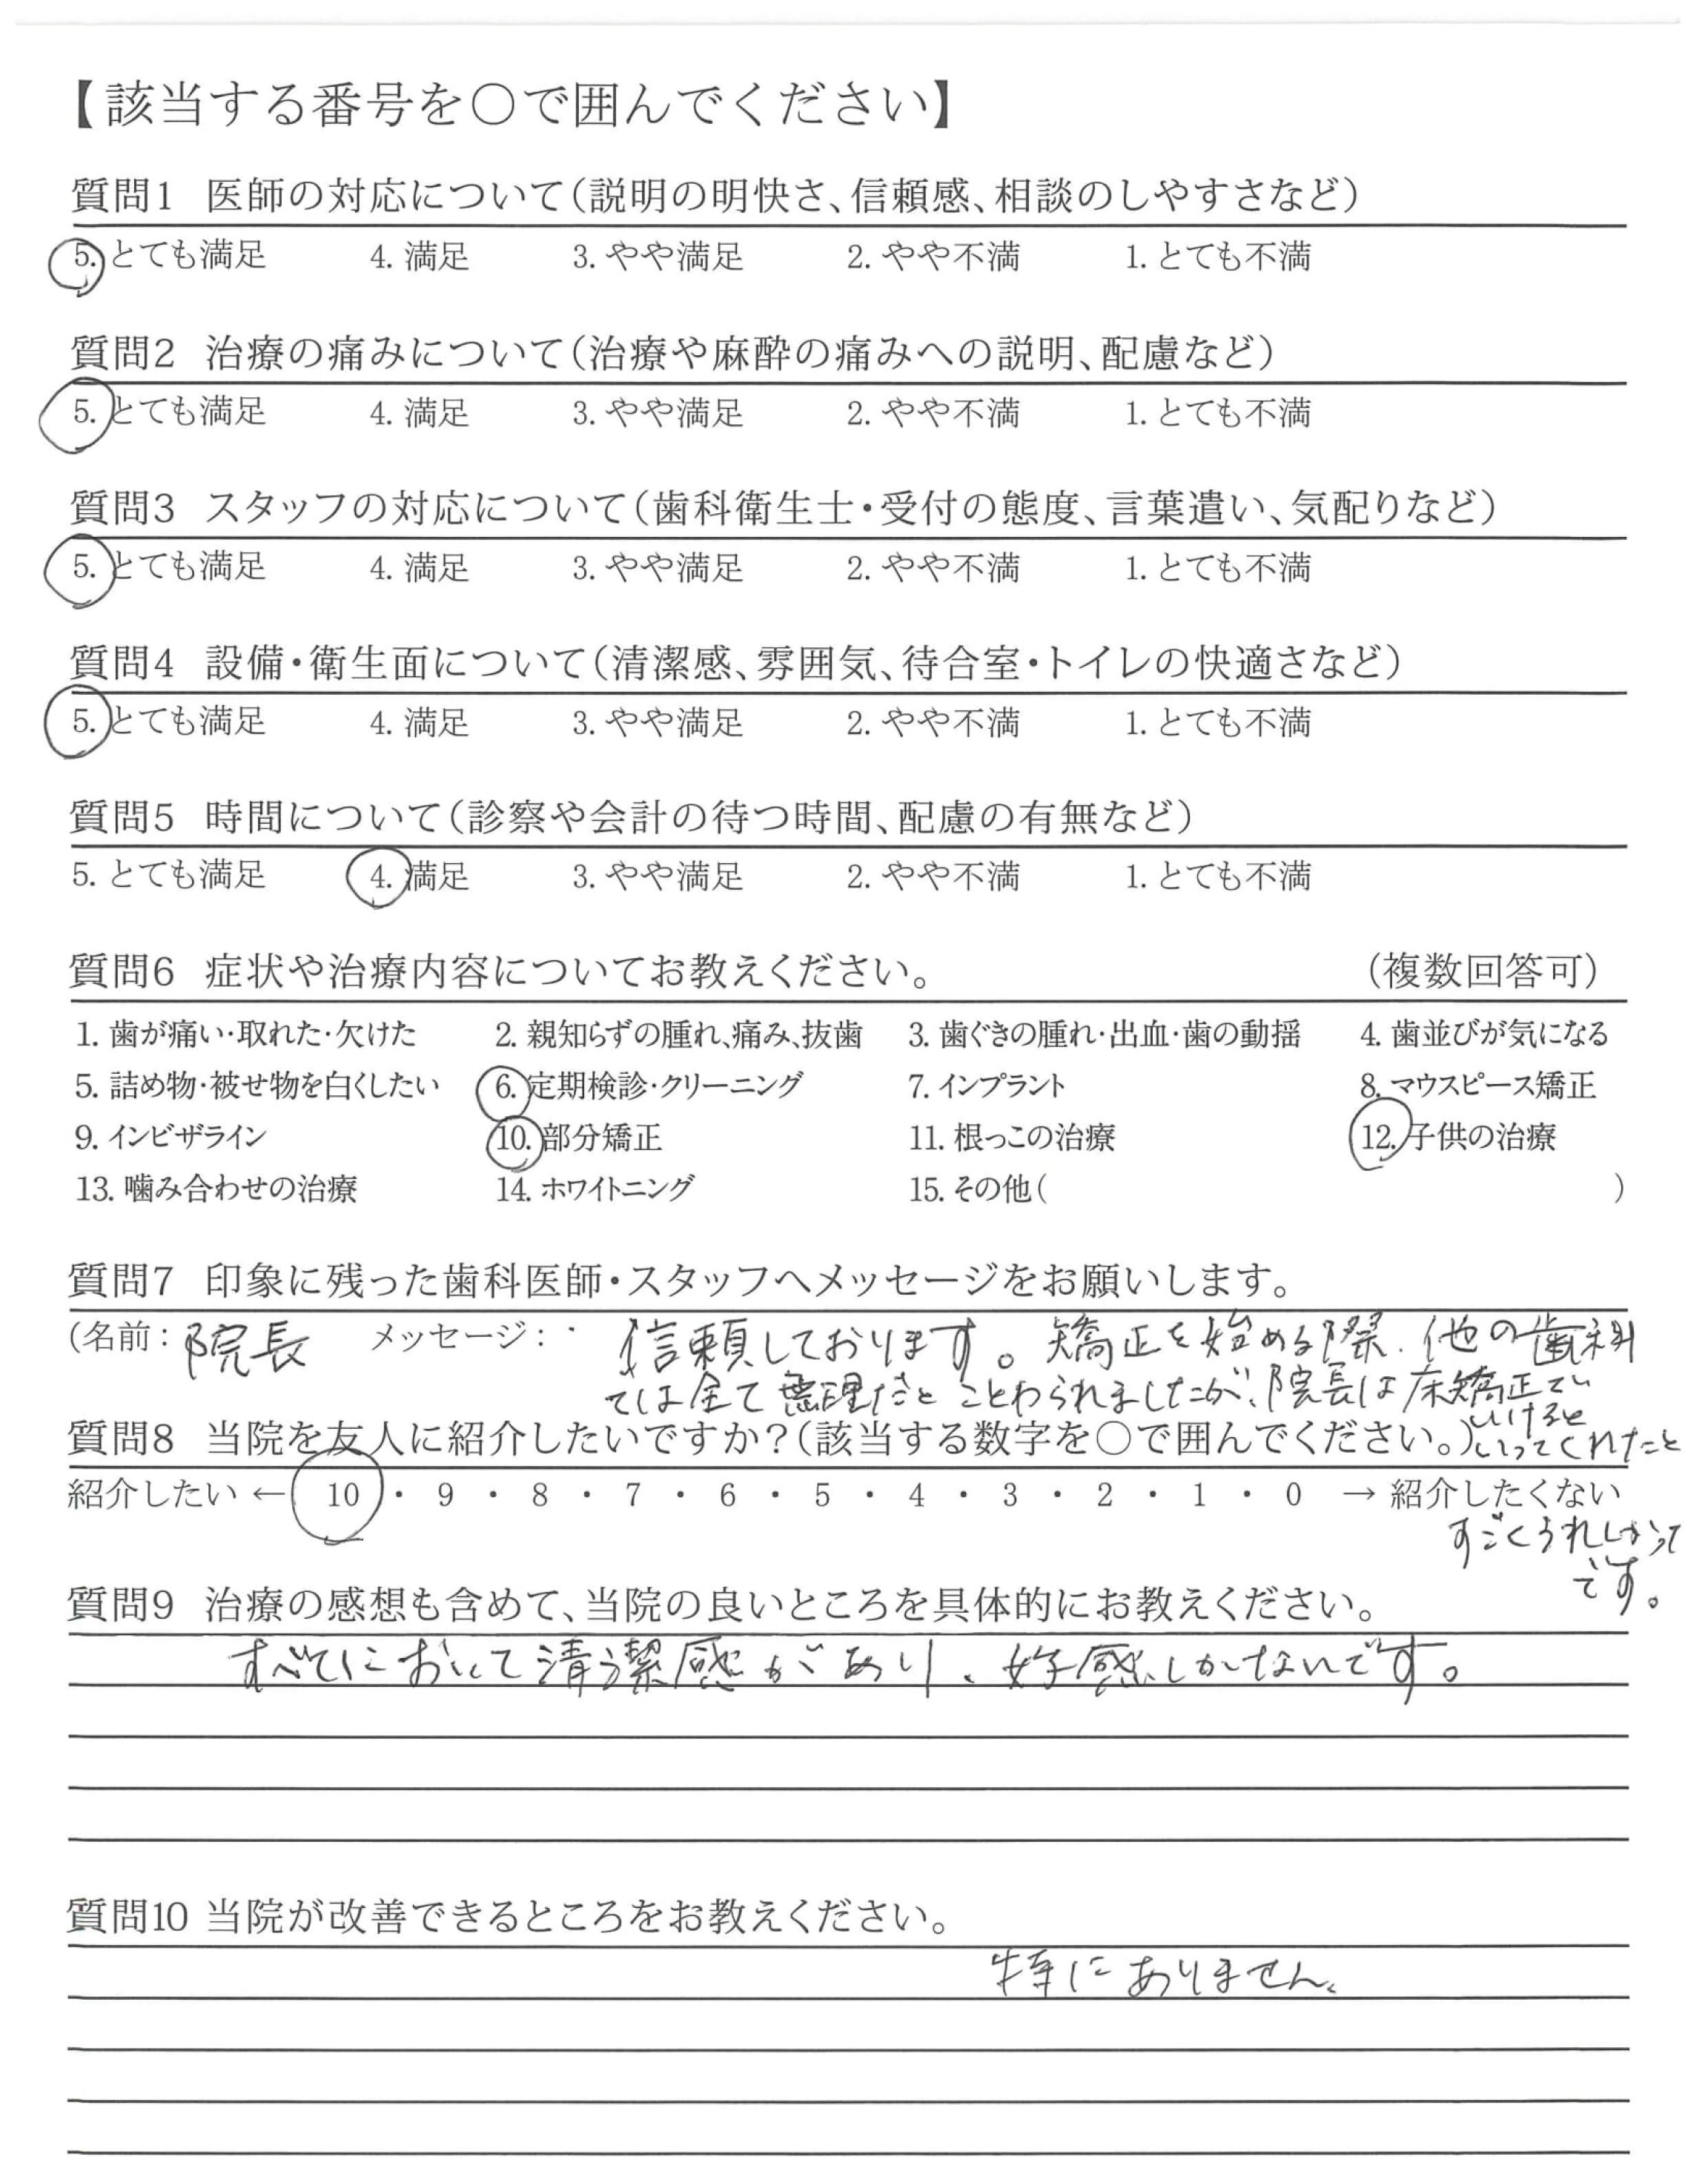 【該当する番号を○で囲んでください】
質問1 医師の対応について(説明の明快さ、信頼感、相談のしやすさなど)
5. とても満足 4. 満足 3. やや満足 2. やや不満 1. とても不満
質問2 治療の痛みについて(治療や麻酔の痛みへの説明、配慮など)
5. とても満足 4. 満足 3. やや満足 2. やや不満 1. とても不満
質問3 スタッフの対応について(歯科衛生士・受付の態度、言葉遣い、気配りなど)
5. とても満足 4. 満足 3. やや満足 2. やや不満 1. とても不満
質問4 設備・衛生面について(清潔感、雰囲気、待合室・トイレの快適さなど)
5. とても満足 4. 満足 3. やや満足 2. やや不満 1. とても不満
質問5 時間について(診察や会計の待つ時間、配慮の有無など)
5. とても満足 4. 満足 3. やや満足 2. やや不満 1. とても不満
質問6 症状や治療内容についてお教えください。 (複数回答可)
1. 歯が痛い・取れた・欠けた 2. 親知らずの腫れ、痛み、抜歯 3. 歯ぐきの腫れ・出血・歯の動揺 4. 歯並びが気になる
5. 詰め物・被せ物を白くしたい 6. 定期検診・クリーニング 7. インプラント 8. マウスピース矯正
9. インビザライン 10. 部分矯正 11. 根っこの治療 12. 子供の治療
13. 噛み合わせの治療 14. ホワイトニング 15. その他( )
質問7 印象に残った歯科医師・スタッフへメッセージをお願いします。
(名前: 院長 メッセージ: 信頼しております。矯正を始める際、他の歯科
では全て無理だとことわられましたが、院長は床矯正で
いけると
質問8 当院を友人に紹介したいですか?(該当する数字を○で囲んでください。)いってくれたこと
紹介したい ← 10 ・ 9 ・ 8 ・ 7 ・ 6 ・ 5 ・ 4 ・ 3 ・ 2 ・ 1 ・ 0 → 紹介したくない
すごくうれしかって
です。
質問9 治療の感想も含めて、当院の良いところを具体的にお教えください。
すべてにおいて清潔感があり、好感しかないです。
質問10 当院が改善できるところをお教えください。
特にありません。